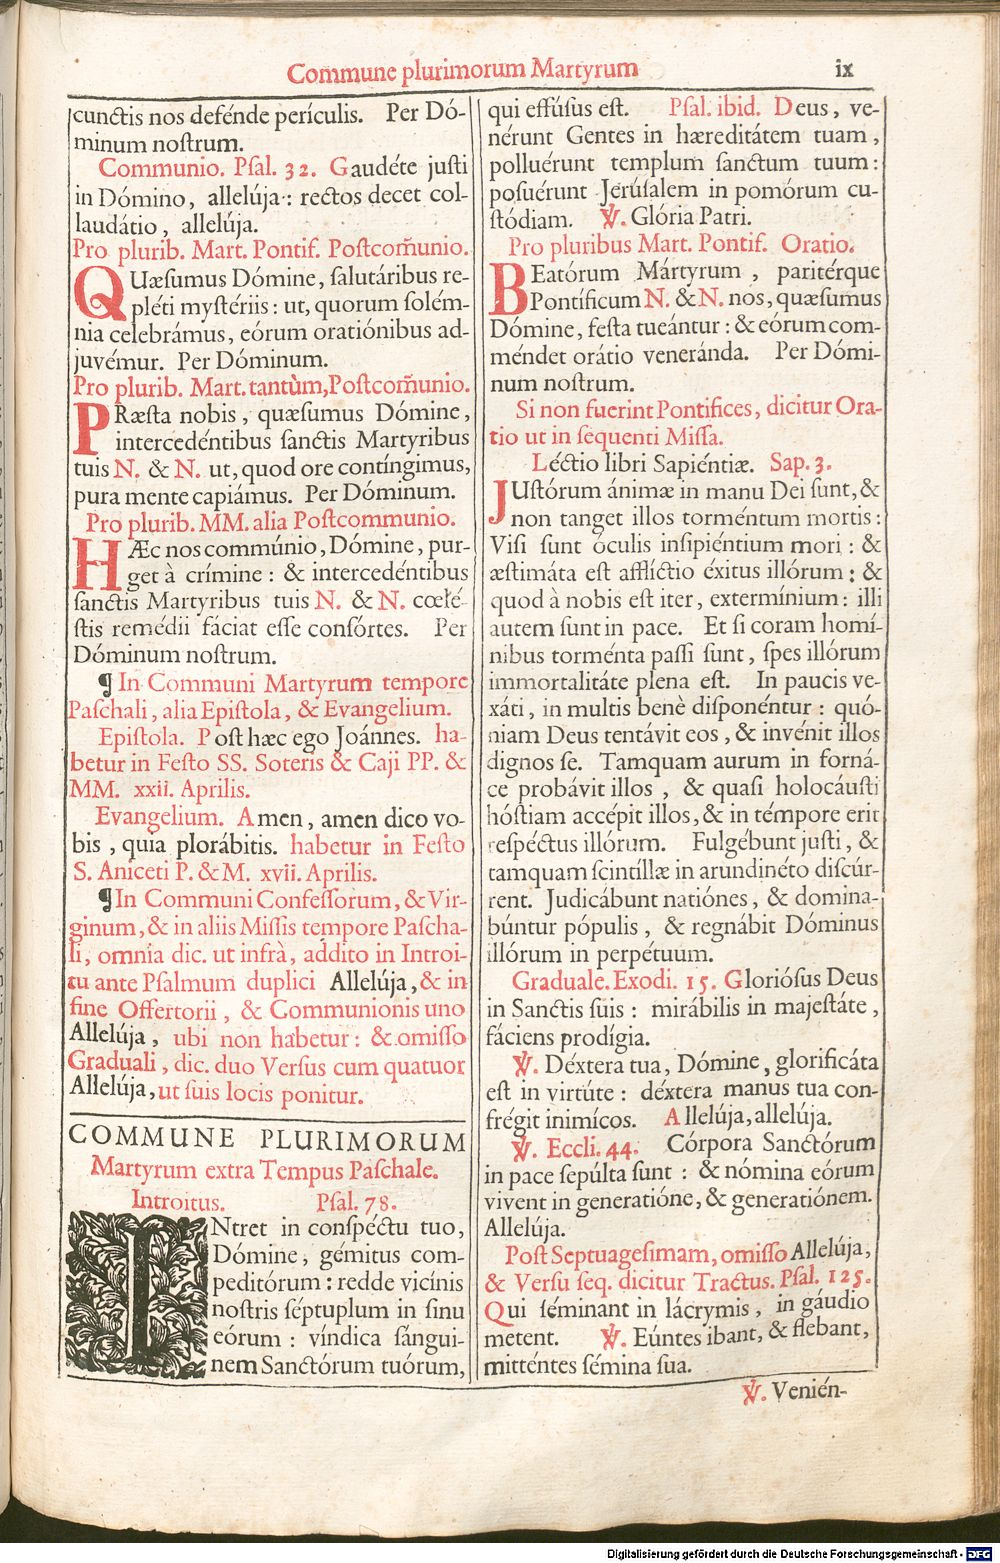 Commune plurimorum Martyrum
ix
cunctis nos defénde perículis. Per Dó-
minum noſtrum.
Communio. Pſal. 32. Gaudéte juſti
in Dómino, allelúja : rectos decet col-
laudátio, allelúja.
Pro plurib. Mart. Pontif. Poſtcom̃unio.
QUæſumus Dómine, ſalutáribus re-
pléti myſtériis : ut, quorum ſolém-
nia celebrámus, eórum oratiónibus ad-
juvémur. Per Dóminum.
Pro plurib. Mart. tantùm, Poſtcom̃unio.
PRæſta nobis, quæſumus Dómine,
intercedéntibus ſanctis Martyribus
tuis N. & N. ut, quod ore contíngimus,
pura mente capiámus. Per Dóminum.
Pro plurib. MM. alia Poſtcommunio.
HÆc nos commúnio, Dómine, pur-
get à crímine : & intercedéntibus
ſanctis Martyribus tuis N. & N. cœlé-
ſtis remédii fáciat eſſe conſórtes. Per
Dóminum noſtrum.
¶ In Communi Martyrum tempore
Paſchali, alia Epiſtola, & Evangelium.
Epiſtola. Poſt hæc ego Joánnes. ha-
betur in Feſto SS. Soteris & Caji PP. &
MM. xxii. Aprilis.
Evangelium. Amen, amen dico vo-
bis, quia plorábitis. habetur in Feſto
S. Aniceti P. & M. xvii. Aprilis.
¶ In Communi Confeſſorum, & Vir-
ginum, & in aliis Miſſis tempore Paſcha-
li, omnia dic. ut infrà, addito in Introi-
tu ante Pſalmum duplici Allelúja, & in
fine Offertorii, & Communionis uno
Allelúja, ubi non habetur : & omiſſo
Graduali, dic. duo Verſus cum quatuor
Allelúja, ut ſuis locis ponitur.
COMMUNE PLURIMORUM
Martyrum extra Tempus Paſchale.
Introitus. Pſal. 78.
INtret in conſpéctu tuo,
Dómine, gémitus com-
peditórum : redde vicínis
noſtris ſéptuplum in ſinu
eórum : víndica ſángui-
nem Sanctórum tuórum,
qui effúſus eſt. Pſal. ibid. Deus, ve-
nérunt Gentes in hæreditátem tuam,
polluérunt templum ſanctum tuum :
poſuérunt Jerúſalem in pomórum cu-
ſtódiam. ℣. Glória Patri.
Pro pluribus Mart. Pontif. Oratio.
BEatórum Mártyrum, paritérque
Pontíficum N. & N. nos, quæſumus
Dómine, feſta tueántur : & eórum com-
méndet orátio veneránda. Per Dómi-
num noſtrum.
Si non fuerint Pontifices, dicitur Ora-
tio ut in ſequenti Miſſa.
Léctio libri Sapiéntiæ. Sap. 3.
JUſtórum ánimæ in manu Dei ſunt, &
non tanget illos torméntum mortis :
Viſi ſunt óculis inſipiéntium mori : &
æſtimáta eſt afflíctio éxitus illórum : &
quod à nobis eſt iter, extermínium : illi
autem ſunt in pace. Et ſi coram homí-
nibus torménta paſſi ſunt, ſpes illórum
immortalitáte plena eſt. In paucis ve-
xáti, in multis benè diſponéntur : quó-
niam Deus tentávit eos, & invénit illos
dignos ſe. Tamquam aurum in forná-
ce probávit illos, & quaſi holocáuſti
hóſtiam accépit illos, & in témpore erit
reſpéctus illórum. Fulgébunt juſti, &
tamquam ſcintíllæ in arundinéto diſcúr-
rent. Judicábunt natiónes, & domina-
búntur pópulis, & regnábit Dóminus
illórum in perpétuum.
Graduale. Exodi. 15. Glorióſus Deus
in Sanctis ſuis : mirábilis in majeſtáte,
fáciens prodígia.
℣. Déxtera tua, Dómine, glorificáta
eſt in virtúte : déxtera manus tua con-
frégit inimícos. Allelúja, allelúja.
℣. Eccli. 44. Córpora Sanctórum
in pace ſepúlta ſunt : & nómina eórum
vivent in generatióne, & generatiónem.
Allelúja.
Poſt Septuageſimam, omiſſo Allelúja,
& Verſu ſeq. dicitur Tractus. Pſal. 125.
Qui ſéminant in lácrymis, in gáudio
metent. ℣. Eúntes ibant, & flebant,
mitténtes ſémina ſua.
℣. Venién-
Digitalisierung gefördert durch die Deutsche Forschungsgemeinschaft - DFG